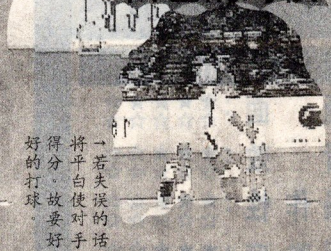 →若失误的话
将平白使对手
得分。故要好
好的打球。